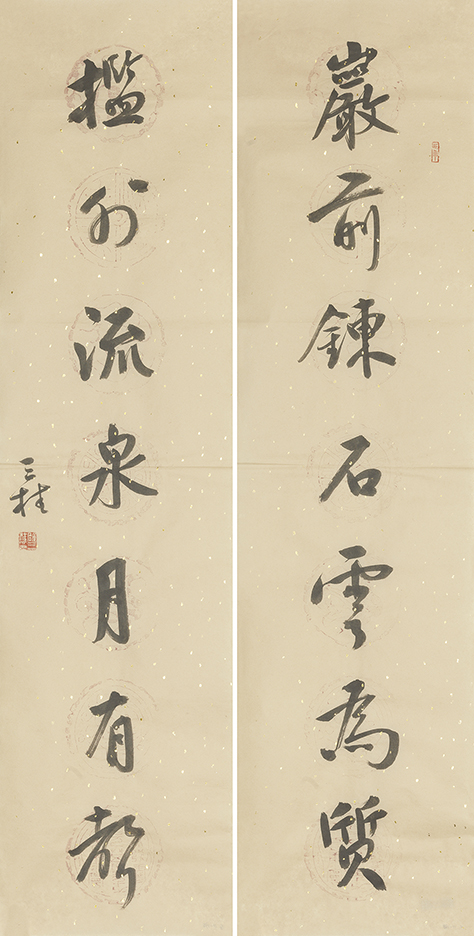 巖前鍊石雲為質
檻外流泉月有聲
三桂